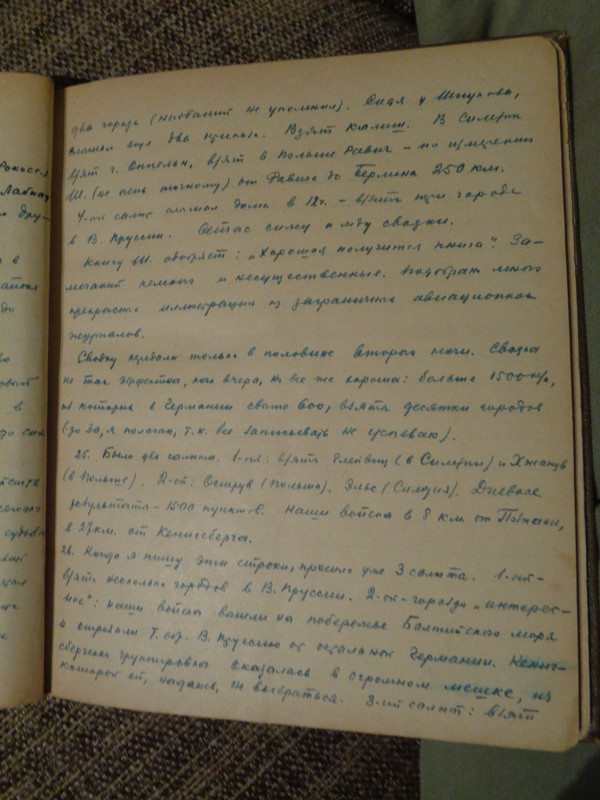 два города (названий не упомнил). Сидя у Шпунова,
слышал еще два приказа. Взят Калиш. В Силезии
взят г. Оппельн, взят в Польше Равич – по измерению
Ш. (не очень точному) от Равича до Берлина 250 км.
4-ый салют слышал дома в 12 ч. – взяты три города
в В. Пруссии. Сейчас сижу и жду сводки.
Книгу Ш. одобряет: „Хорошая получится книга". За-
мечаний немного и несущественные. Подобрал много
прекрасных иллюстраций из заграничных авиационных
журналов.
Сводку передали только в половине второго ночи. Сводка
не так эффектна, как вчера, но все же хороша: больше 1500 н/п,
из которых в Германии свыше 600, взяты десятки городов
(до 30, я полагаю, т. к. все записывать не успеваю).
25. Было два салюта. 1-ый: взяты Глейвиц (в Силезии) и Хжанув
(в Польше). 2-ой: Острув (Польша), Эльс (Силезия). Дневные
результаты – 1500 пунктов. Наши войска в 8 км от Познани,
в 27 км. от Кенигсберга.
26. Когда я пишу эти строки, прошло уже 3 салюта. 1-ый –
взять несколько городов в В. Пруссии. 2-ой – гораздо „интерес-
нее": наши войска вышли на побережье Балтийского моря
и отрезали т. обр. В. Пруссию от остальной Германии. Кениг-
сбергская группировка оказалась в огромном мешке, из
которого ей, надеюсь, не вырваться. 3-ий салют: взяты
Рокосс.)